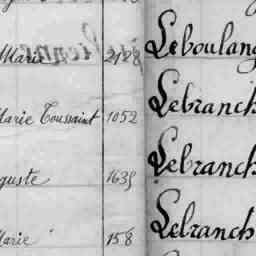 Marie 2128 Leboulang
Marie Toussaint 1052 Lebranch
guste 1635 Lebranch
Marie 158 Lebranch